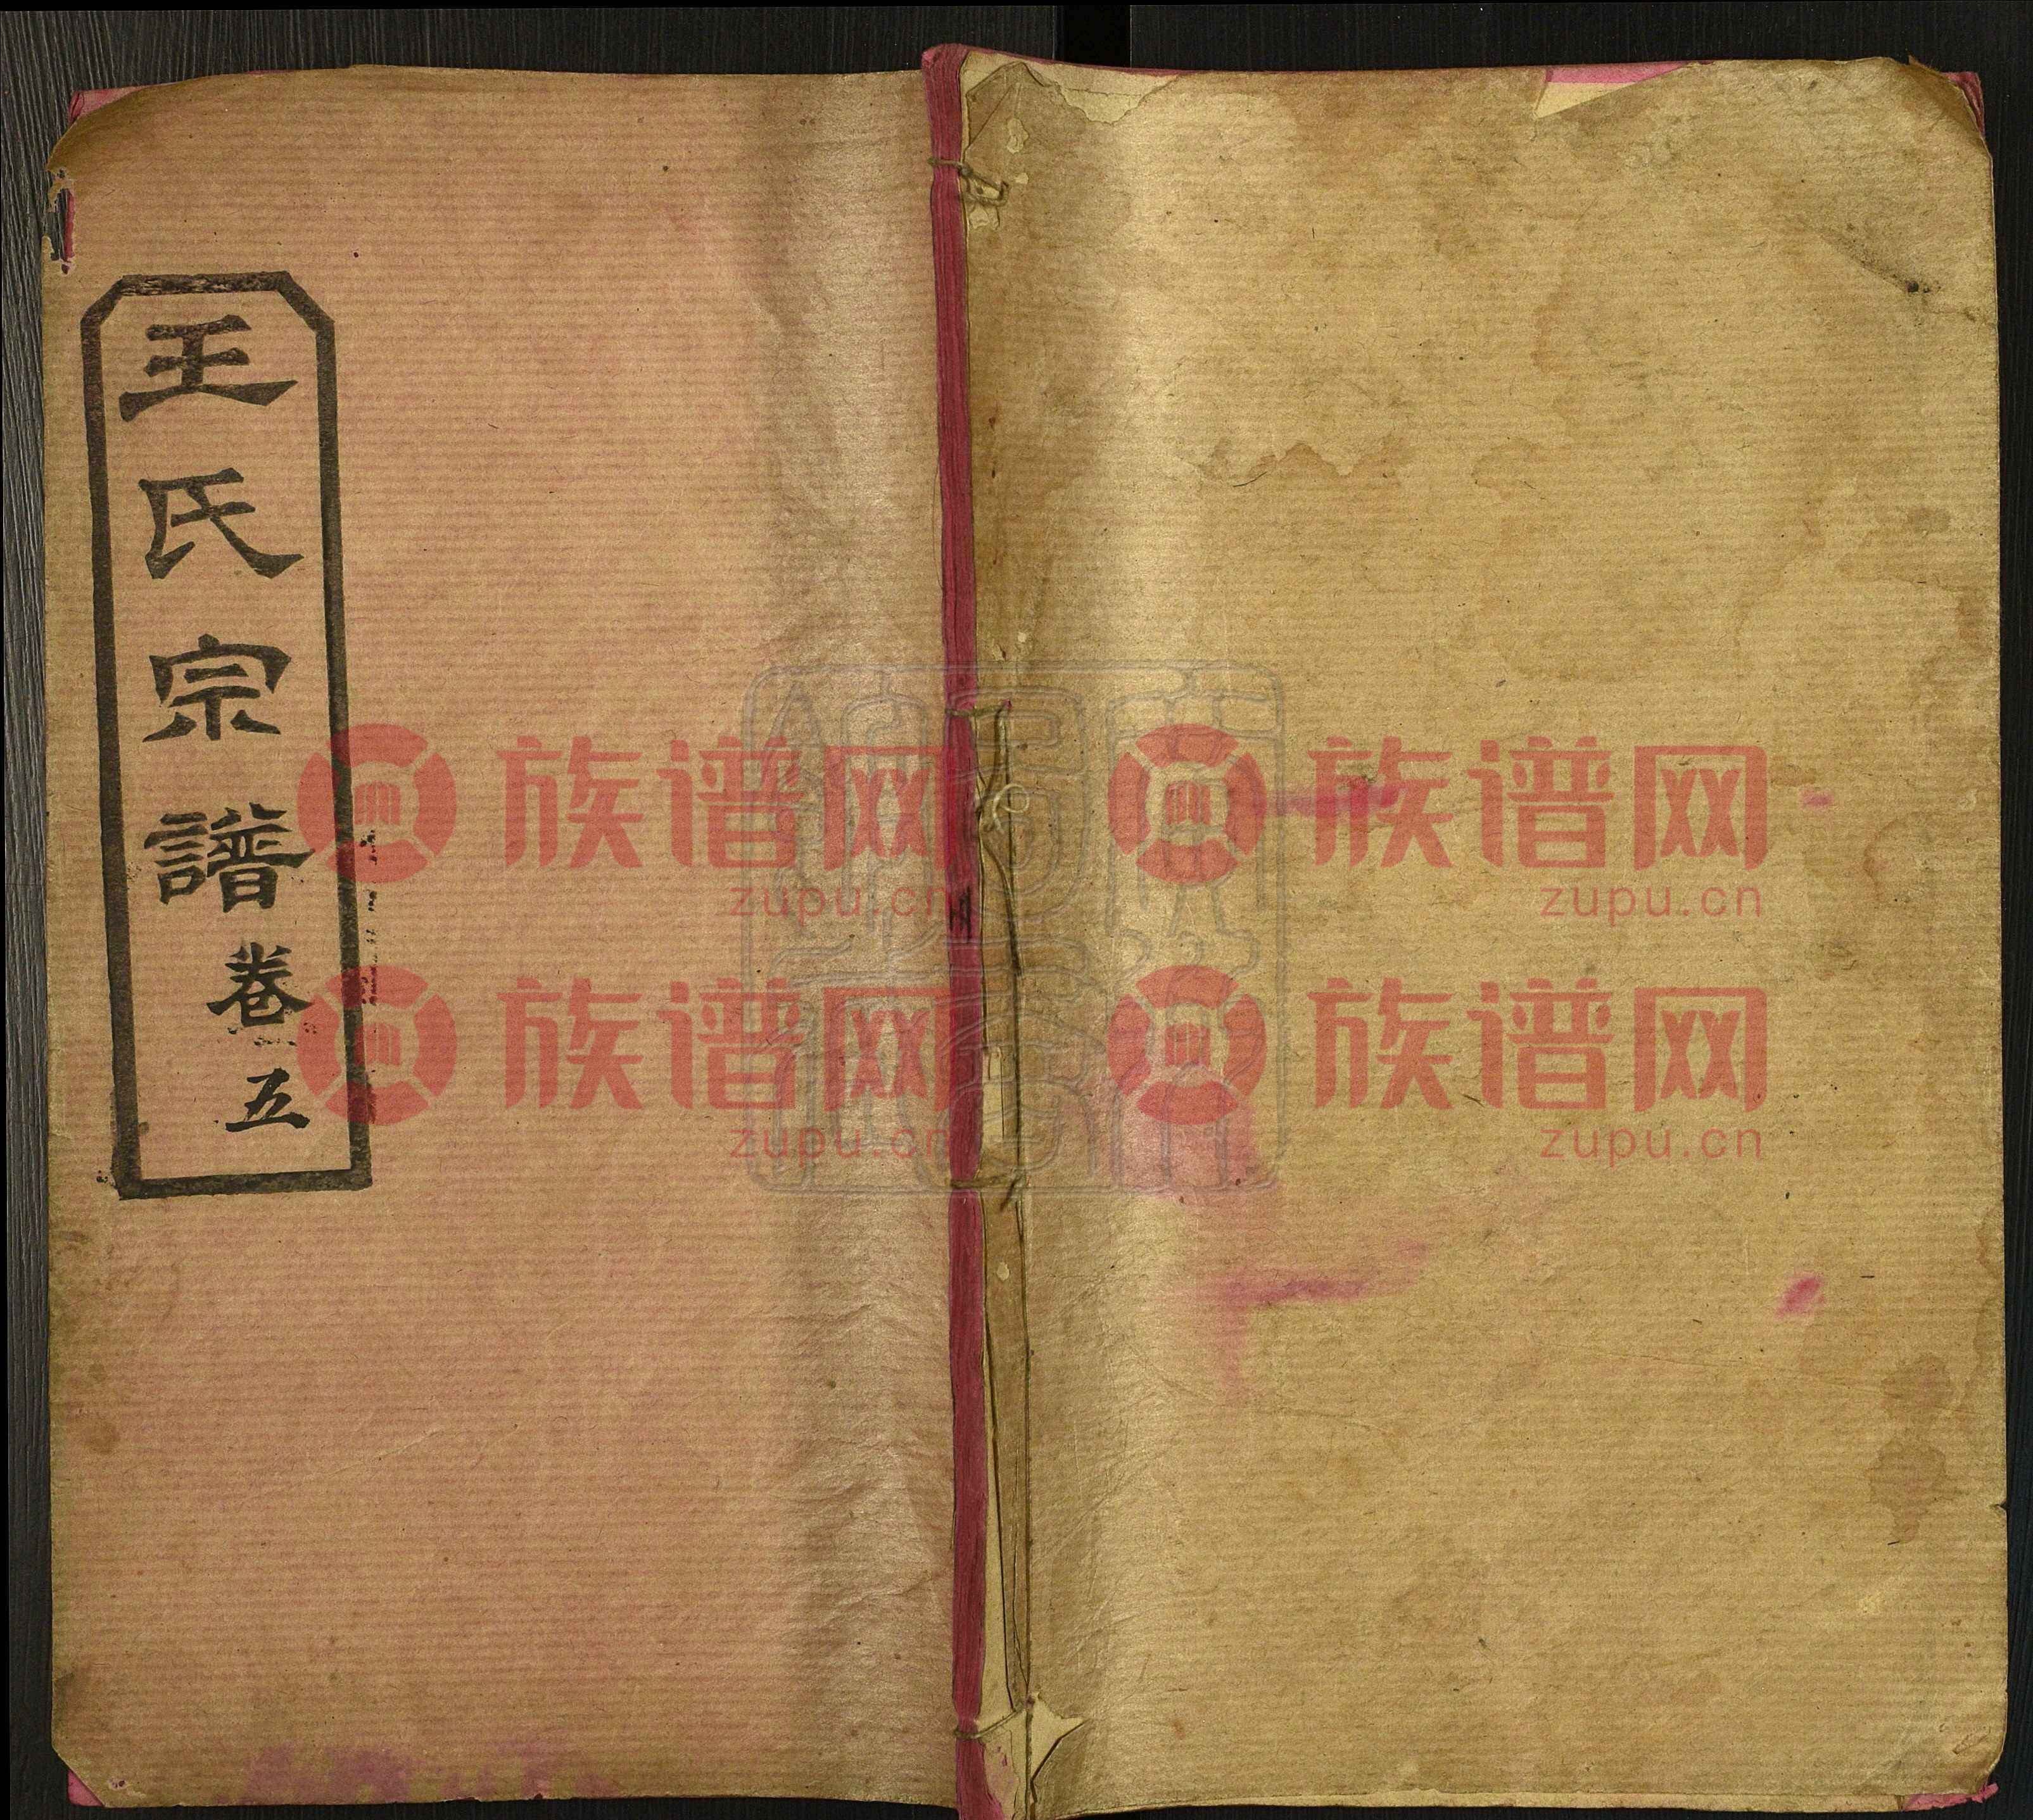 王氏宗譜卷五
族谱网 族谱网
zupu.cn zupu.cn
族谱网 族谱网
zupu.cn zupu.cn